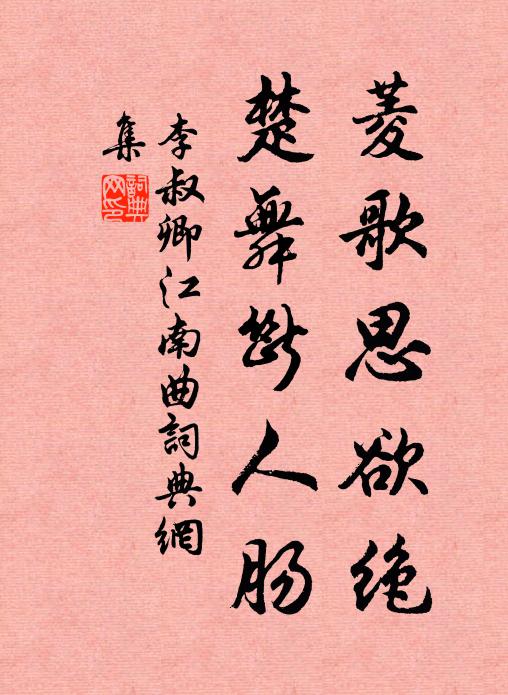 菱歌思欲绝
楚舞斷人肠
李叔卿江南曲詞典網
集
詞典網印